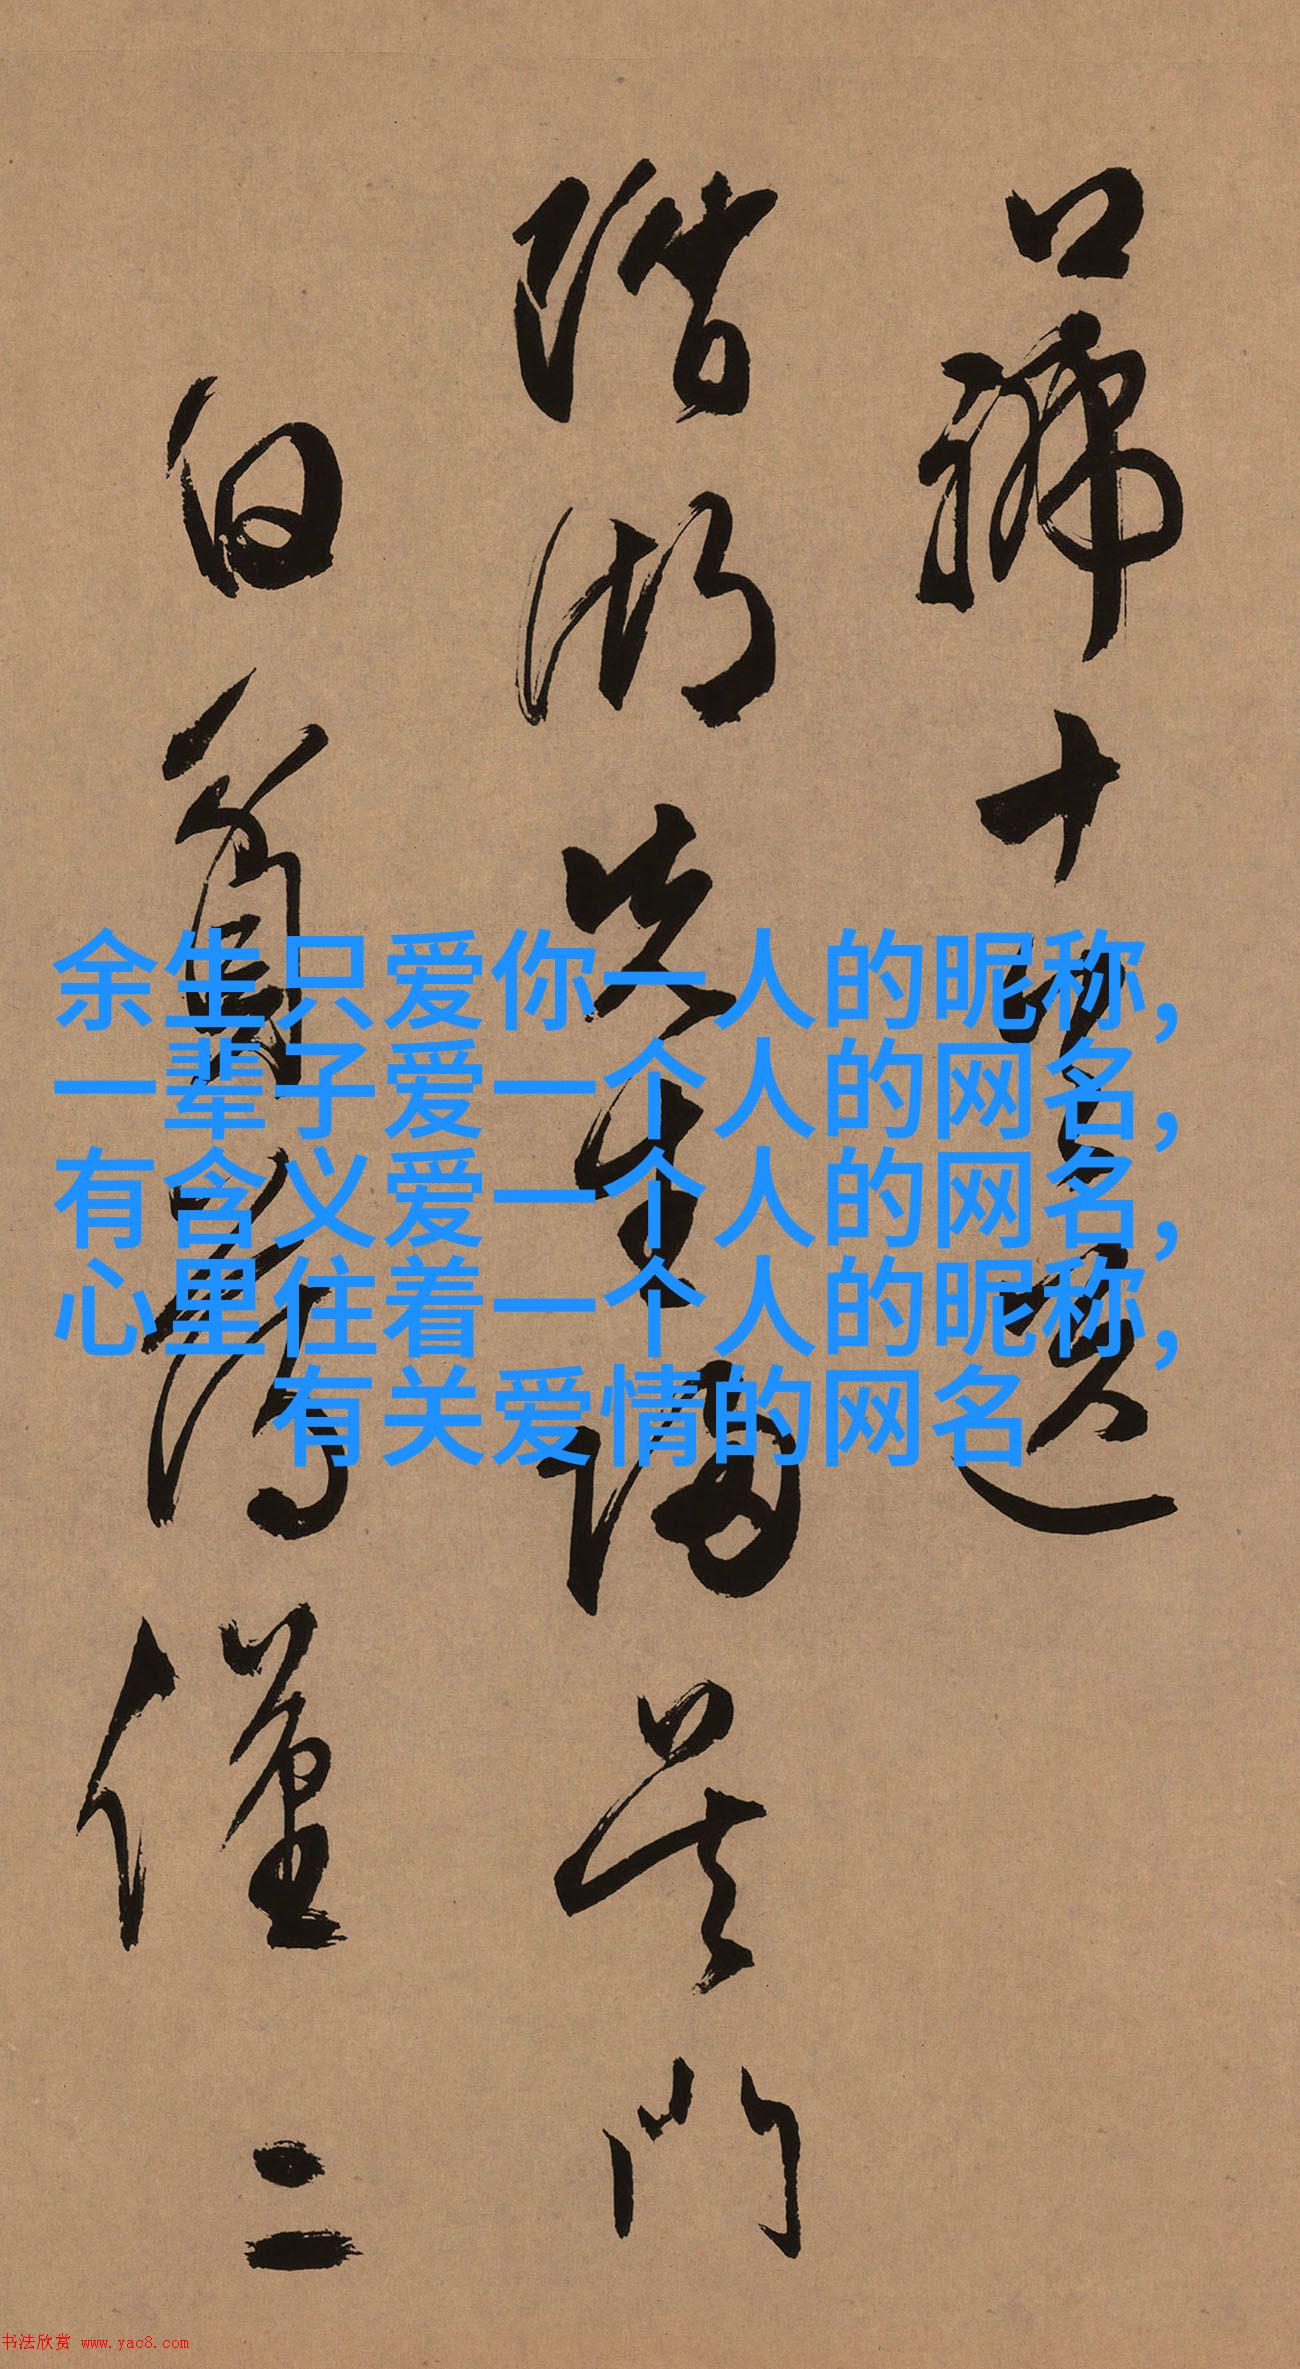 口號十送
湖先生歸吳門
白首僅二
余生只爱你一人的昵称,
一辈子爱一个人的网名,
有含义爱一个人的网名,
心里住着一个人的昵称,
有关爱情的网名
书法欣赏 www.yac8.com